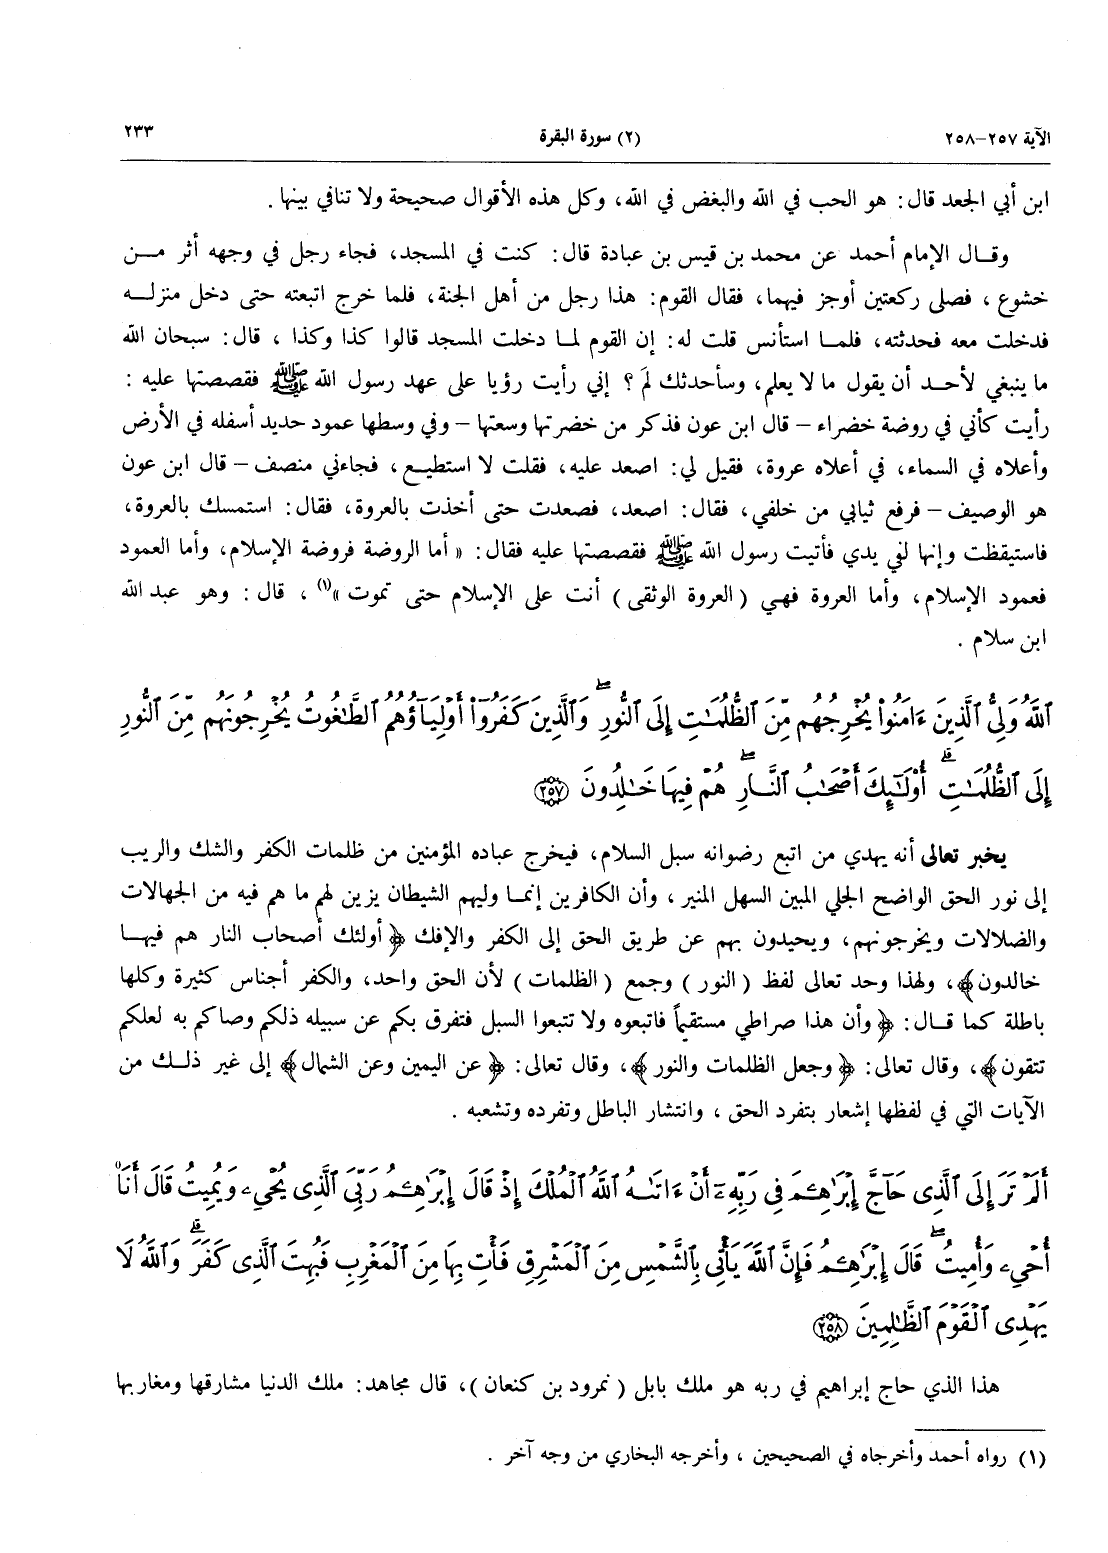 الآية ٢٥٧-٢٥٨ (٢) سورة البقرة ٢٣٣
ابن أبي الجعد قال: هو الحب في الله والبغض في الله، وكل هذه الأقوال صحيحة ولا تنافي بينها .
وقال الإمام أحمد عن محمد بن قيس بن عبادة قال: كنت في المسجد، فجاء رجل في وجهه أثر من
خشوع ، فصلى ركعتين أوجز فيهما، فقال القوم: هذا رجل من أهل الجنة، فلما خرج اتبعته حتى دخل منزله
فدخلت معه فحدثته، فلما استأنس قلت له: إن القوم لما دخلت المسجد قالوا كذا وكذا ، قال: سبحان الله
ما ينبغي لأحد أن يقول ما لا يعلم، وسأحدثك لمَ ؟ إني رأيت رؤيا على عهد رسول الله ﷺ فقصصتها عليه :
رأيت كأني في روضة خضراء - قال ابن عون فذكر من خضرتها وسعتها - وفي وسطها عمود حديد أسفله في الأرض
وأعلاه في السماء، في أعلاه عروة، فقيل لي: اصعد عليه، فقلت لا استطيع، فجاءني منصف - قال ابن عون
هو الوصيف - فرفع ثيابي من خلفي، فقال: اصعد، فصعدت حتى أخذت بالعروة، فقال: استمسك بالعروة،
فاستيقظت وإنها لفي يدي فأتيت رسول الله ﷺ فقصصتها عليه فقال: « أما الروضة فروضة الإسلام، وأما العمود
فعمود الإسلام، وأما العروة فهي ( العروة الوثقى ) أنت على الإسلام حتى تموت »(١) ، قال: وهو عبد الله
ابن سلام .
ٱللَّهُ وَلِىُّ ٱلَّذِينَ ءَامَنُوا۟ يُخْرِجُهُم مِّنَ ٱلظُّلُمَٰتِ إِلَى ٱلنُّورِ ۖ وَٱلَّذِينَ كَفَرُوٓا۟ أَوْلِيَآؤُهُمُ ٱلطَّٰغُوتُ يُخْرِجُونَهُم مِّنَ ٱلنُّورِ
إِلَى ٱلظُّلُمَٰتِ ۗ أُو۟لَٰٓئِكَ أَصْحَٰبُ ٱلنَّارِ ۖ هُمْ فِيهَا خَٰلِدُونَ ﴿٢٥٧﴾
يخبر تعالى أنه يهدي من اتبع رضوانه سبل السلام، فيخرج عباده المؤمنين من ظلمات الكفر والشك والريب
إلى نور الحق الواضح الجلي المبين السهل المنير ، وأن الكافرين إنما وليهم الشيطان يزين لهم ما هم فيه من الجهالات
والضلالات ويخرجونهم، ويحيدون بهم عن طريق الحق إلى الكفر والإفك ﴿ أولئك أصحاب النار هم فيها
خالدون﴾، ولهذا وحد تعالى لفظ ( النور ) وجمع ( الظلمات ) لأن الحق واحد، والكفر أجناس كثيرة وكلها
باطلة كما قال: ﴿ وأن هذا صراطي مستقيماً فاتبعوه ولا تتبعوا السبل فتفرق بكم عن سبيله ذلكم وصاكم به لعلكم
تتقون﴾، وقال تعالى: ﴿ وجعل الظلمات والنور ﴾، وقال تعالى: ﴿ عن اليمين وعن الشمال﴾ إلى غير ذلك من
الآيات التي في لفظها إشعار بتفرد الحق ، وانتشار الباطل وتفرده وتشعبه .
أَلَمْ تَرَ إِلَى ٱلَّذِى حَآجَّ إِبْرَٰهِۦمَ فِى رَبِّهِۦٓ أَنْ ءَاتَىٰهُ ٱللَّهُ ٱلْمُلْكَ إِذْ قَالَ إِبْرَٰهِۦمُ رَبِّىَ ٱلَّذِى يُحْىِۦ وَيُمِيتُ قَالَ أَنَا۠
أُحْىِۦ وَأُمِيتُ ۖ قَالَ إِبْرَٰهِۦمُ فَإِنَّ ٱللَّهَ يَأْتِى بِٱلشَّمْسِ مِنَ ٱلْمَشْرِقِ فَأْتِ بِهَا مِنَ ٱلْمَغْرِبِ فَبُهِتَ ٱلَّذِى كَفَرَ ۗ وَٱللَّهُ لَا
يَهْدِى ٱلْقَوْمَ ٱلظَّٰلِمِينَ ﴿٢٥٨﴾
هذا الذي حاج إبراهيم في ربه هو ملك بابل ( نمرود بن كنعان )، قال مجاهد: ملك الدنيا مشارقها ومغاربها
(١) رواه أحمد وأخرجاه في الصحيحين ، وأخرجه البخاري من وجه آخر .